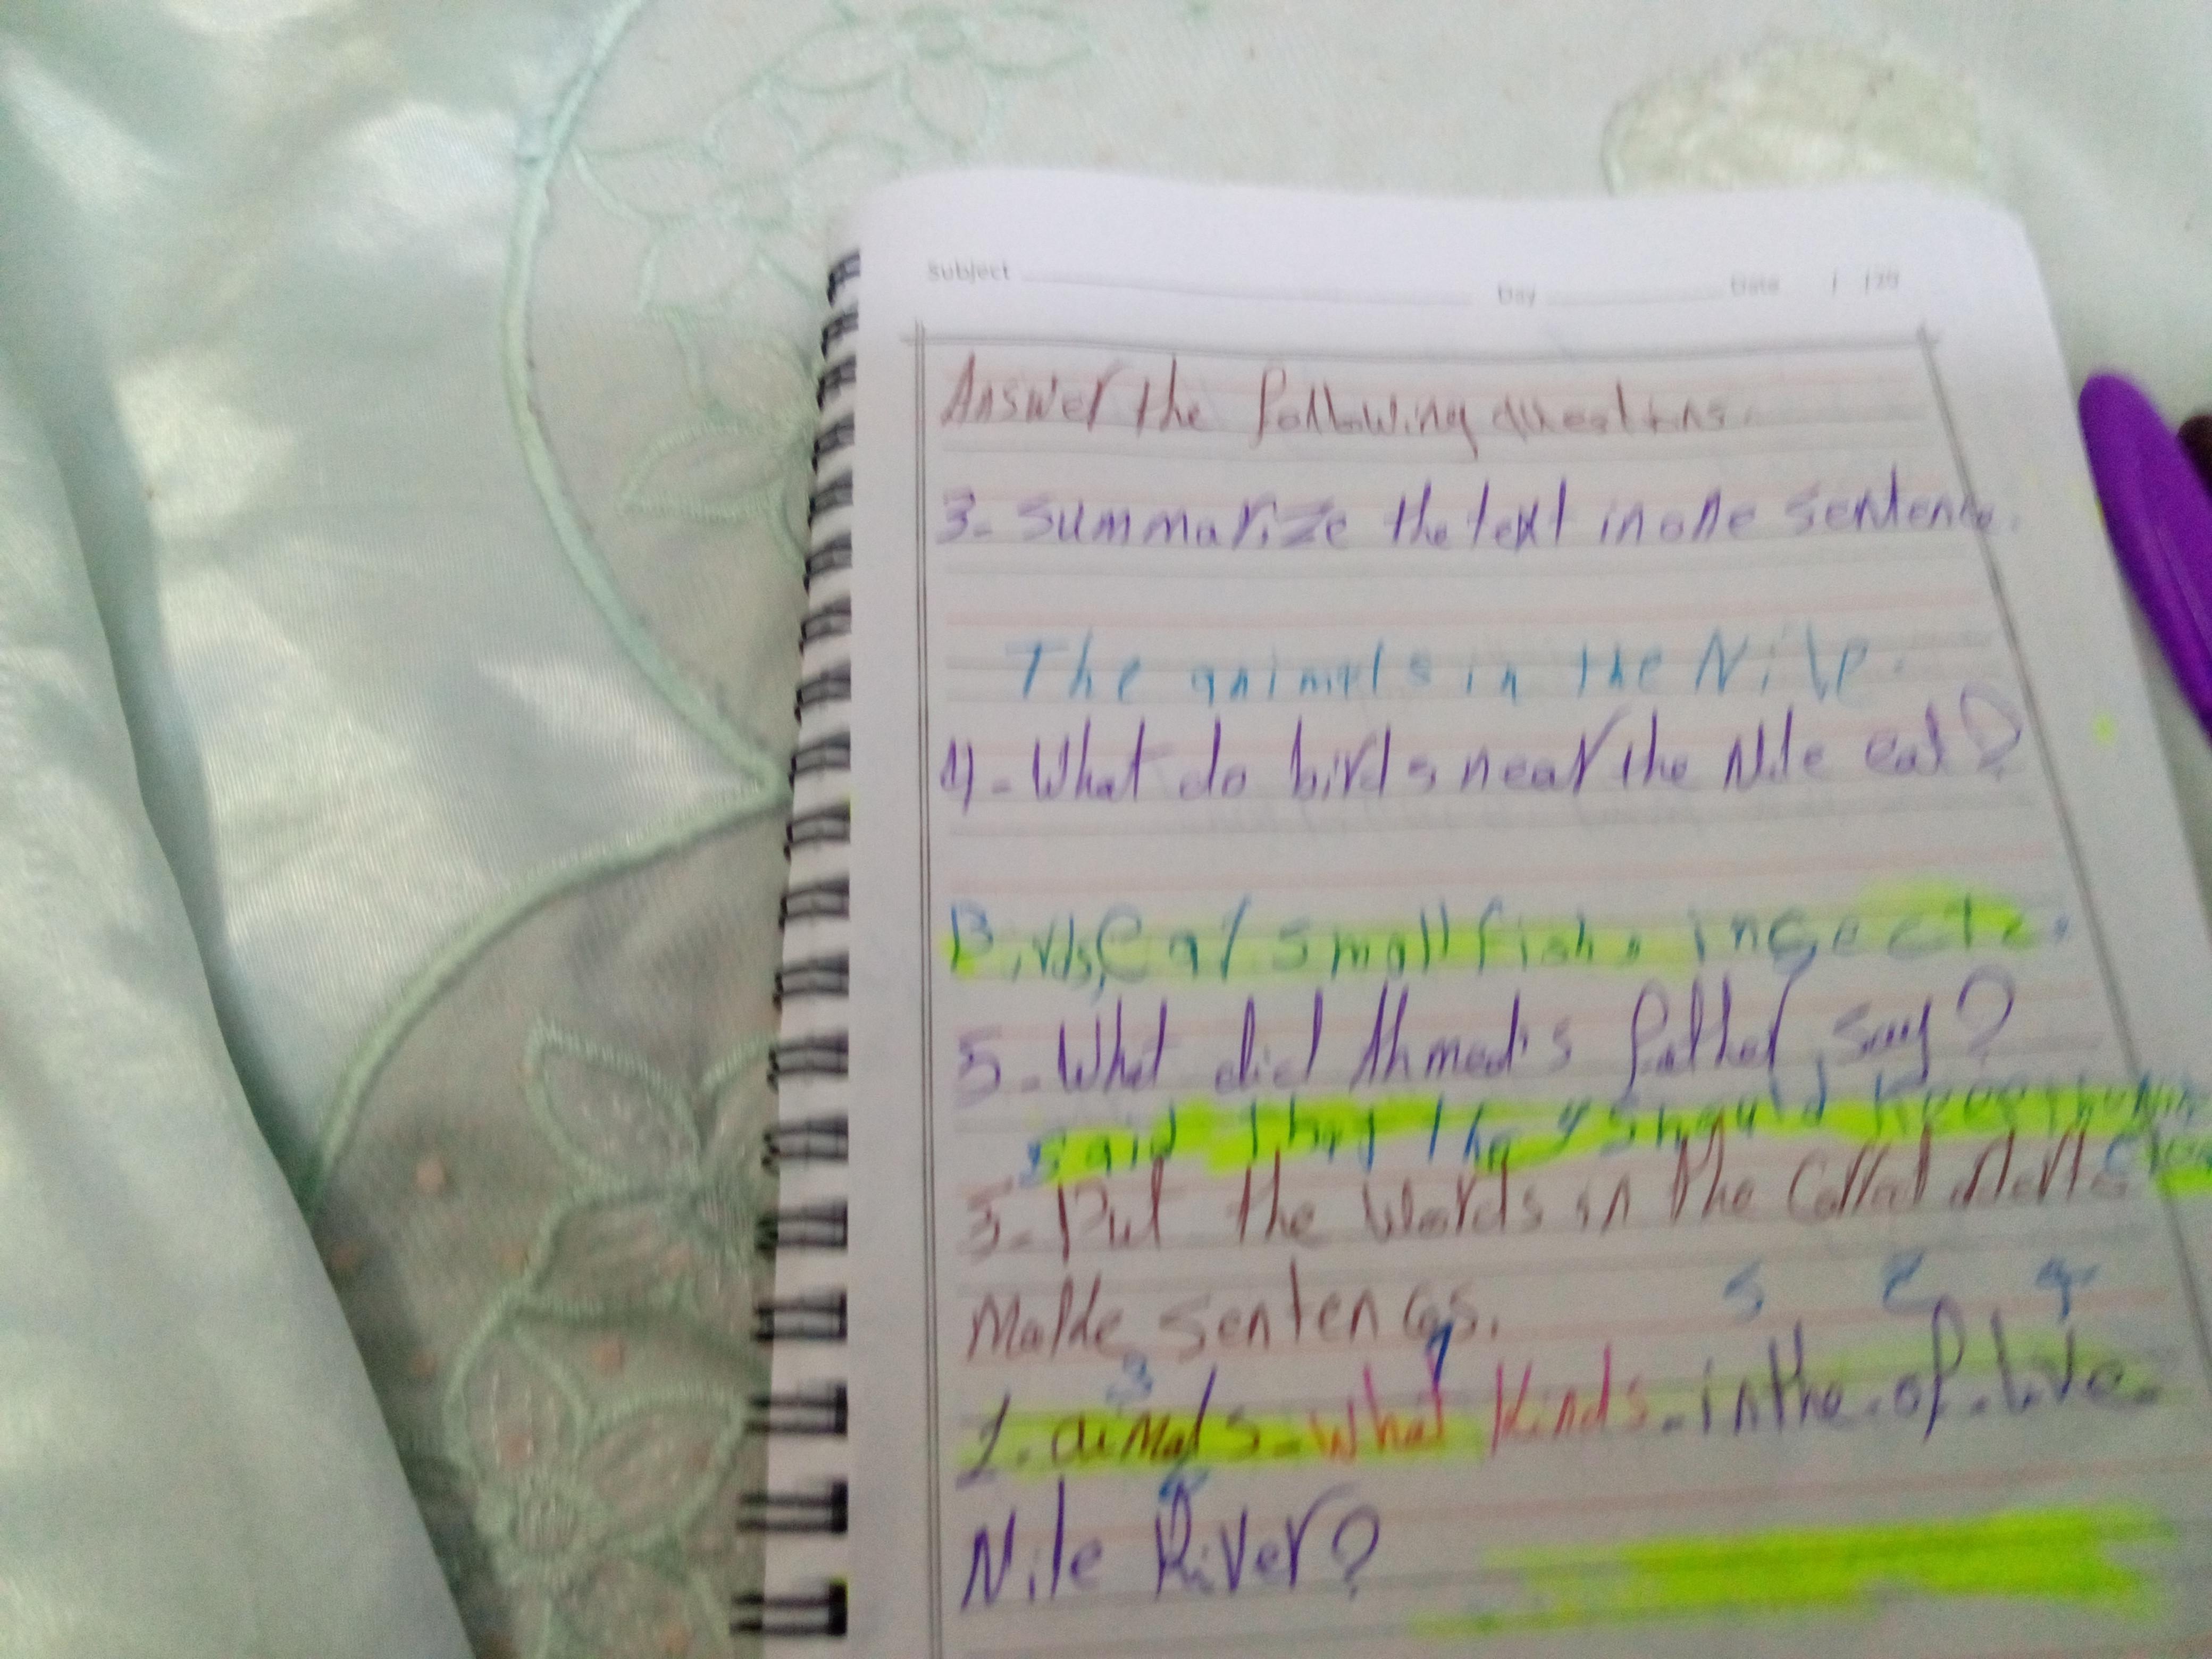 Subject Day Date / /20
Answer the following questions.
3- Summarize the text in one sentence.
The animals in the Nile.
4- What do birds near the Nile eat?
Birds, eat small fish, insects.
5- What did Ahmed's father say?
said that they should keep the
5- Put the words in the
Make sentences.
5 2 4
3 1
2. aimals - what kinds - in the - of - live -
Nile River?